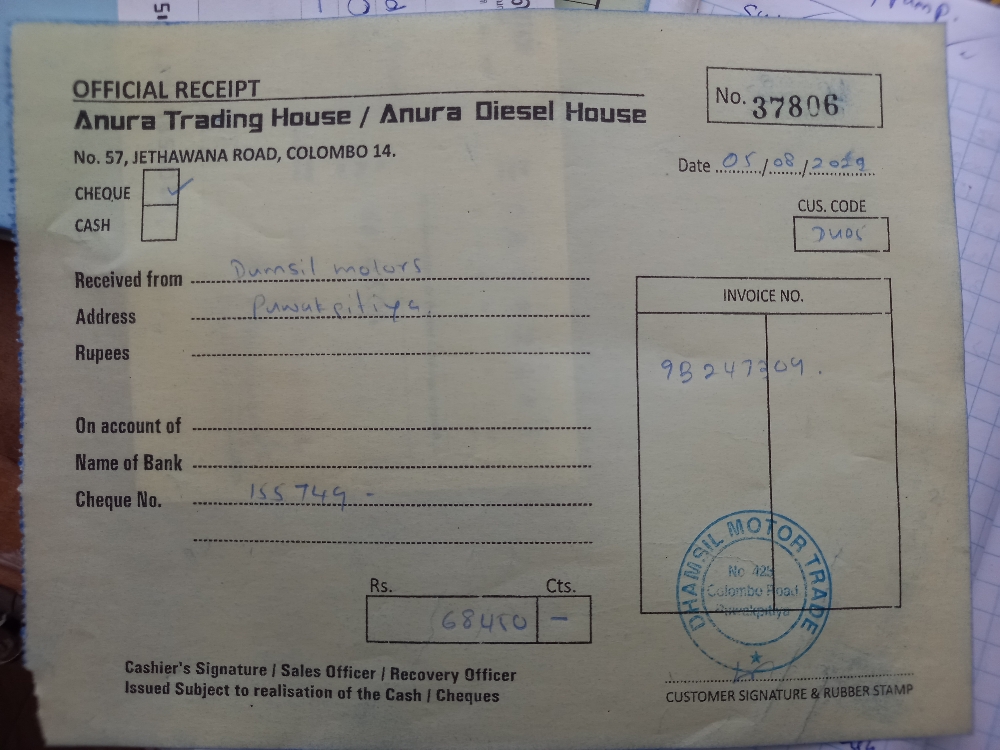 OFFICIAL RECEIPT
Anura Trading House / Anura Diesel House
No. 57, JETHAWANA ROAD, COLOMBO 14.
No. 37806
Date 05/08/2019
CHEQUE ✓
CASH
CUS. CODE
DU05
Received from Dumsil motors
Address Puwakpitiya.
Rupees
INVOICE NO.
9B247309.
On account of
Name of Bank
Cheque No. 155749 -
Rs. Cts.
68450 -
DHAMSIL MOTOR TRADE
No 425
Colombo Road
Puwakpitiya
Cashier's Signature / Sales Officer / Recovery Officer
Issued Subject to realisation of the Cash / Cheques
CUSTOMER SIGNATURE & RUBBER STAMP